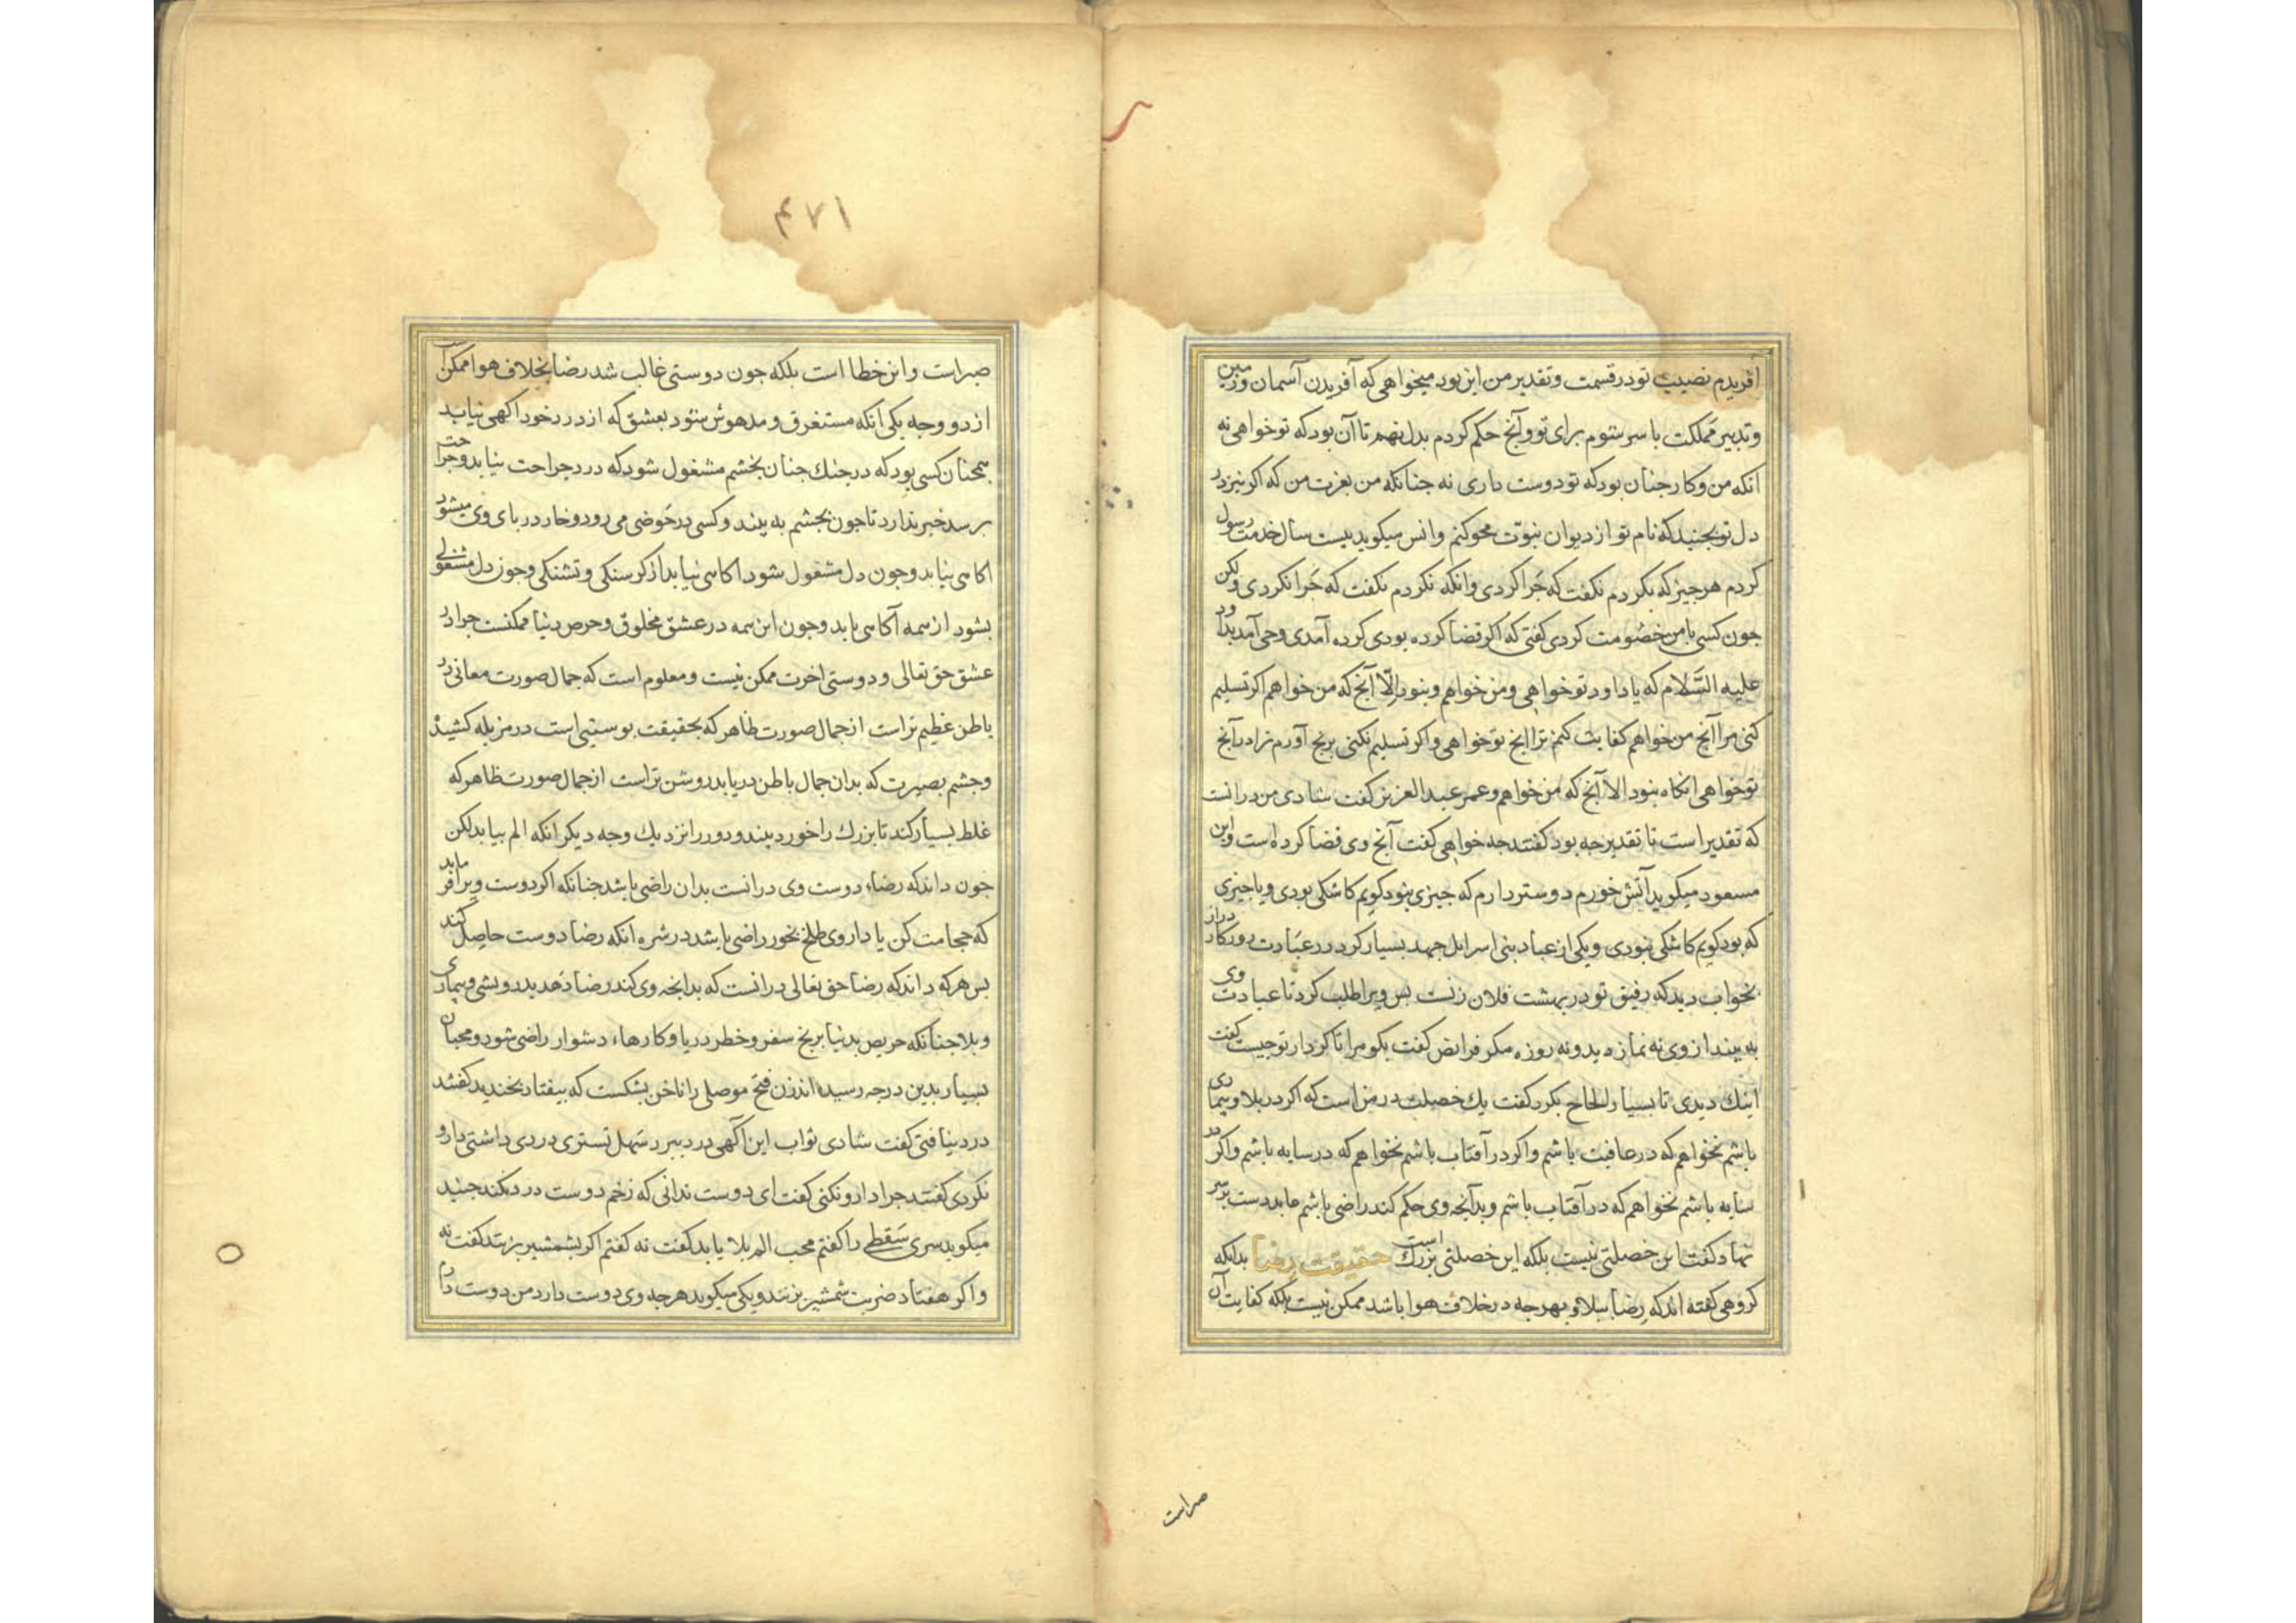 آفریدم نصیب تو در قسمت و تقدیر من این بود میخواهی که آفریدن آسمان و زمین
و تدبیر مملکت با سر شوم برای تو و آنچ حکم کردم بدل نهم تا آن بود که تو خواهی نه
انکه من و کار جنان بود که تو دوست داری نه جنانکه من بعزت من که اکر نیز در
دل تو بجنبد که نام تو از دیوان نبوّت محو کنم و انس میکوید بیست سال خدمت رسول
کردم هر جیز که بکردم نکفت که جَرا کردی و انکه نکردم نکفت که جَرا نکردی و لکن
جون کسی با من خصُومت کردی کفتی که اکر قضا کرده بودی کرده آمدی وحی آمد بداود
علیه السَّلام که یا داود تو خواهی و من خواهم و نبود اِلّا آنچ که من خواهم اکر تسلیم
کنی مرا آنچ من خواهم کفایت کنم ترا انچ تو خواهی و اکر تسلیم نکنی برنج آورم ترا در آنچ
تو خواهی انکاه نبود الا آنچ که من خواهم و عمر عبد العزیز کفت شادی من در انست
که تقدیر است تا تقدیر جه بود کفتند جه خواهی کفت آنچ وی قضا کرده است و ابن
مسعود میکوید آتش خورم دوستر دارم که جیزی نبود کویم کاشکی بودی و یا جیزی
که بود کویم کاشکی نبودی و یکی از عباد بنی اسرایل جهد بسیار کرد در عبَادت روزکار دراز
بخواب دید که رفیق تو در بهشت فلان زنست بس ویرا طلب کرد تا عبادت وی
به بیند از وی نه نماز دید و نه روزه مکر فرایض کفت بکو مرا تا کردار تو جیست کفت
اینک دیدی تا بسیار الحاح بکرد کفت یک خصلت در من است که اکر در بلا و بیماری
باشم نخواهم که در عافیت باشم و اکر در آفتاب باشم نخواهم که در سایه باشم و اکر در
سایه باشم نخواهم که در آفتاب باشم و بدآنچه وی حکم کند راضی باشم عابد دست بر سر
نهاد کفت این خصلتی نیست بلکه این خصلتی بزرک است حقیقت رضا بدانکه
کروهی کفته اند که رضا ببلا و بهرجه در خلاف هوا باشد ممکن نیست بلکه کفایت آن
صبر است
۴۷۱
صبر است و این خطا است بلکه جون دوستی غالب شد رضا بخلاف هوا ممکن است
از دو وجه یکی انکه مستغرق و مدهوش شود بعشق که از درد خود اکهی نیابد
همجنان کسی بود که در جنک جنان بخشم مشغول شود که درد جراحت نیابد و جراحت
برسد خبر ندارد تا جون بجشم به بیند و کسی در حَوضی می رود و خار در بای وی میشود
اکاهی نیابد و جون دل مشغول شود اکاهی نیابد از کرسنکی و تشنکی و جون دل مشغولی
بشود از همه آکاهی یابد و جون این همه در عشق مخلوق و حرص دنیا ممکنست جرا در
عشق حق تعالی و دوستی اخرت ممکن نیست و معلوم است که جمال صورت معانی در
باطن عظیم تر است از جمال صورت ظاهر که بحقیقت بوستیی است در مزبله کشیده
و جشم بصیرت که بدان جمال باطن دریابد روشن تر است از جمال صورت ظاهر که
غلط بسیار کند تا بزرک را خورد بیند و دور را نزدیک وجه دیکر انکه الم بیابد لکن
جون داند که رضاء دوست وی در انست بدان راضی باشد جنانکه اکر دوست ویرا فرماید
که حجامت کن یا داروی طلخ بخور راضی باشد در شره انکه رضا دوست حاصل کند
بس هر که داند که رضا حق تعالی در انست که بدانجه وی کند رضا دَهد بدرویشی و بیماری
و بلا جنانکه حریص بدنیا برنج سفر و خطر دریا و کارهاء دشوار راضی شود و محبان
بسیار بدین درجه رسیده اند زن فتح موصلی را ناخن بشکست که بیفتاد بخندید کفتند
درد نیافتی کفت شادی ثواب این آکهی درد ببرد سَهل تستری دردی داشتی دارو
نکردی کفتند جرا دارو نکنی کفت ای دوست ندانی که زخم دوست درد نکند جنید
میکوید سری سَقطی را کفتم محب الم بلا یابد کفت نه کفتم اکر بشمشیر بزنند کفت نه
و اکر هفتاد ضربت شمشیر بزنند و یکی میکوید هرجه وی دوست دارد من دوست دارم